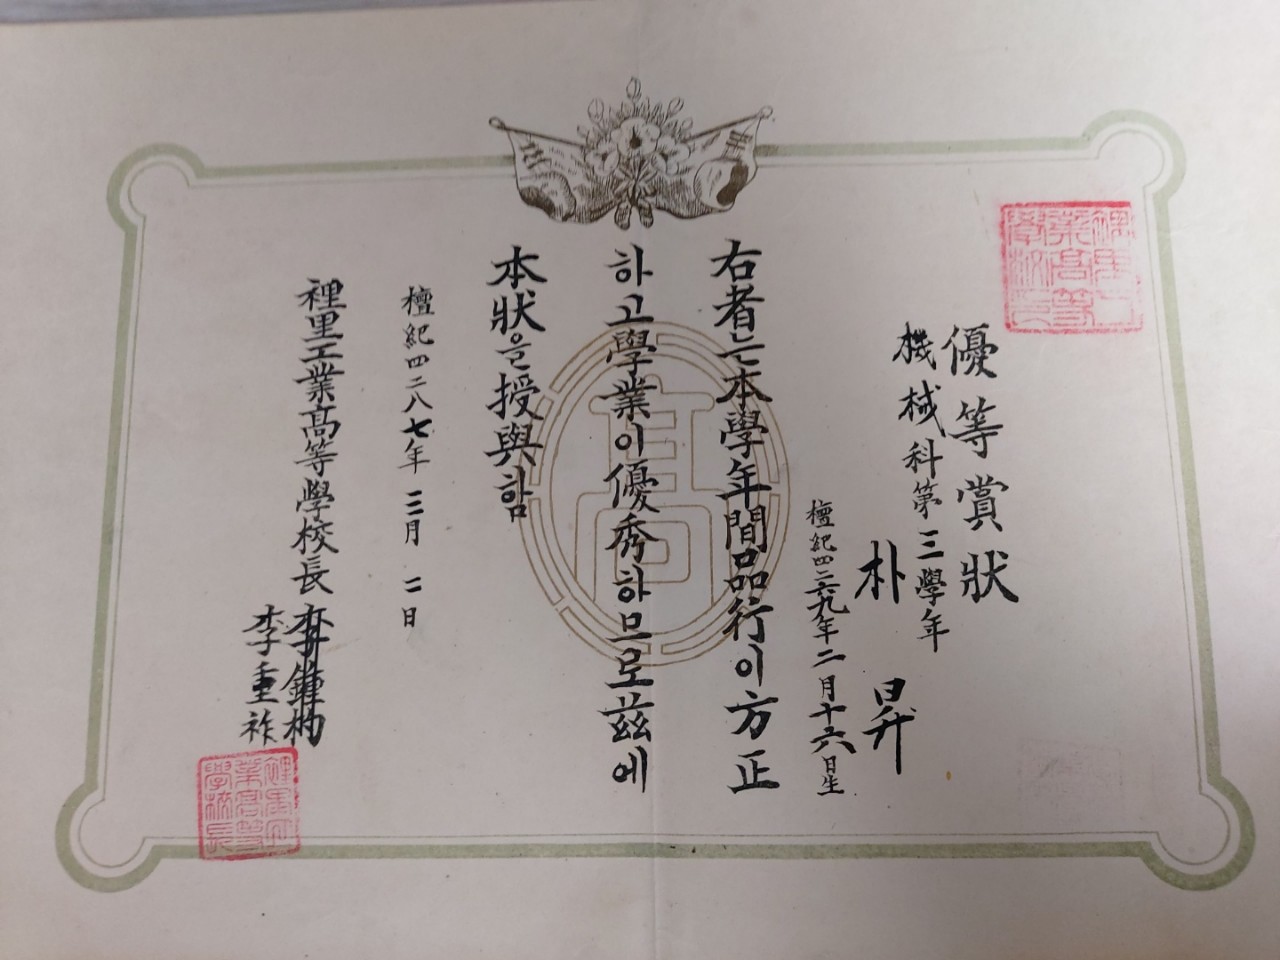 優等賞狀
機械科第三學年
朴昇
檀紀四二六九年二月十六日生
右者는本學年間品行이方正
하고學業이優秀하므로玆에
本狀을授與함
檀紀四二八七年三月二日
裡里工業高等學校長
李重祚
高
裡里工業高等學校長